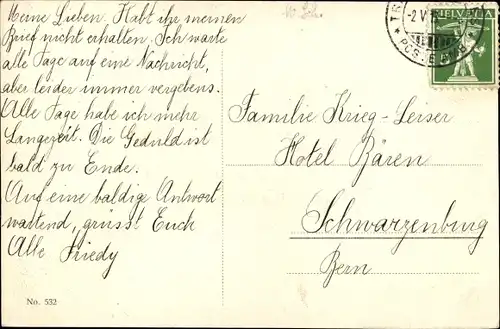 Meine Lieben. Habt ihr meinen
Brief nicht erhalten. Ich warte
alle Tage auf eine Nachricht,
aber leider immer vergebens.
Alle Tage habe ich mehr
Langezeit. Die Geduld ist
bald zu Ende.
Auf eine baldige Antwort
wartend, grüsst Euch
Alle Friedy
No. 532
-2 V
HELVETIA
Familie Krieg-Leiser
Hotel Bären
Schwarzenburg
Bern